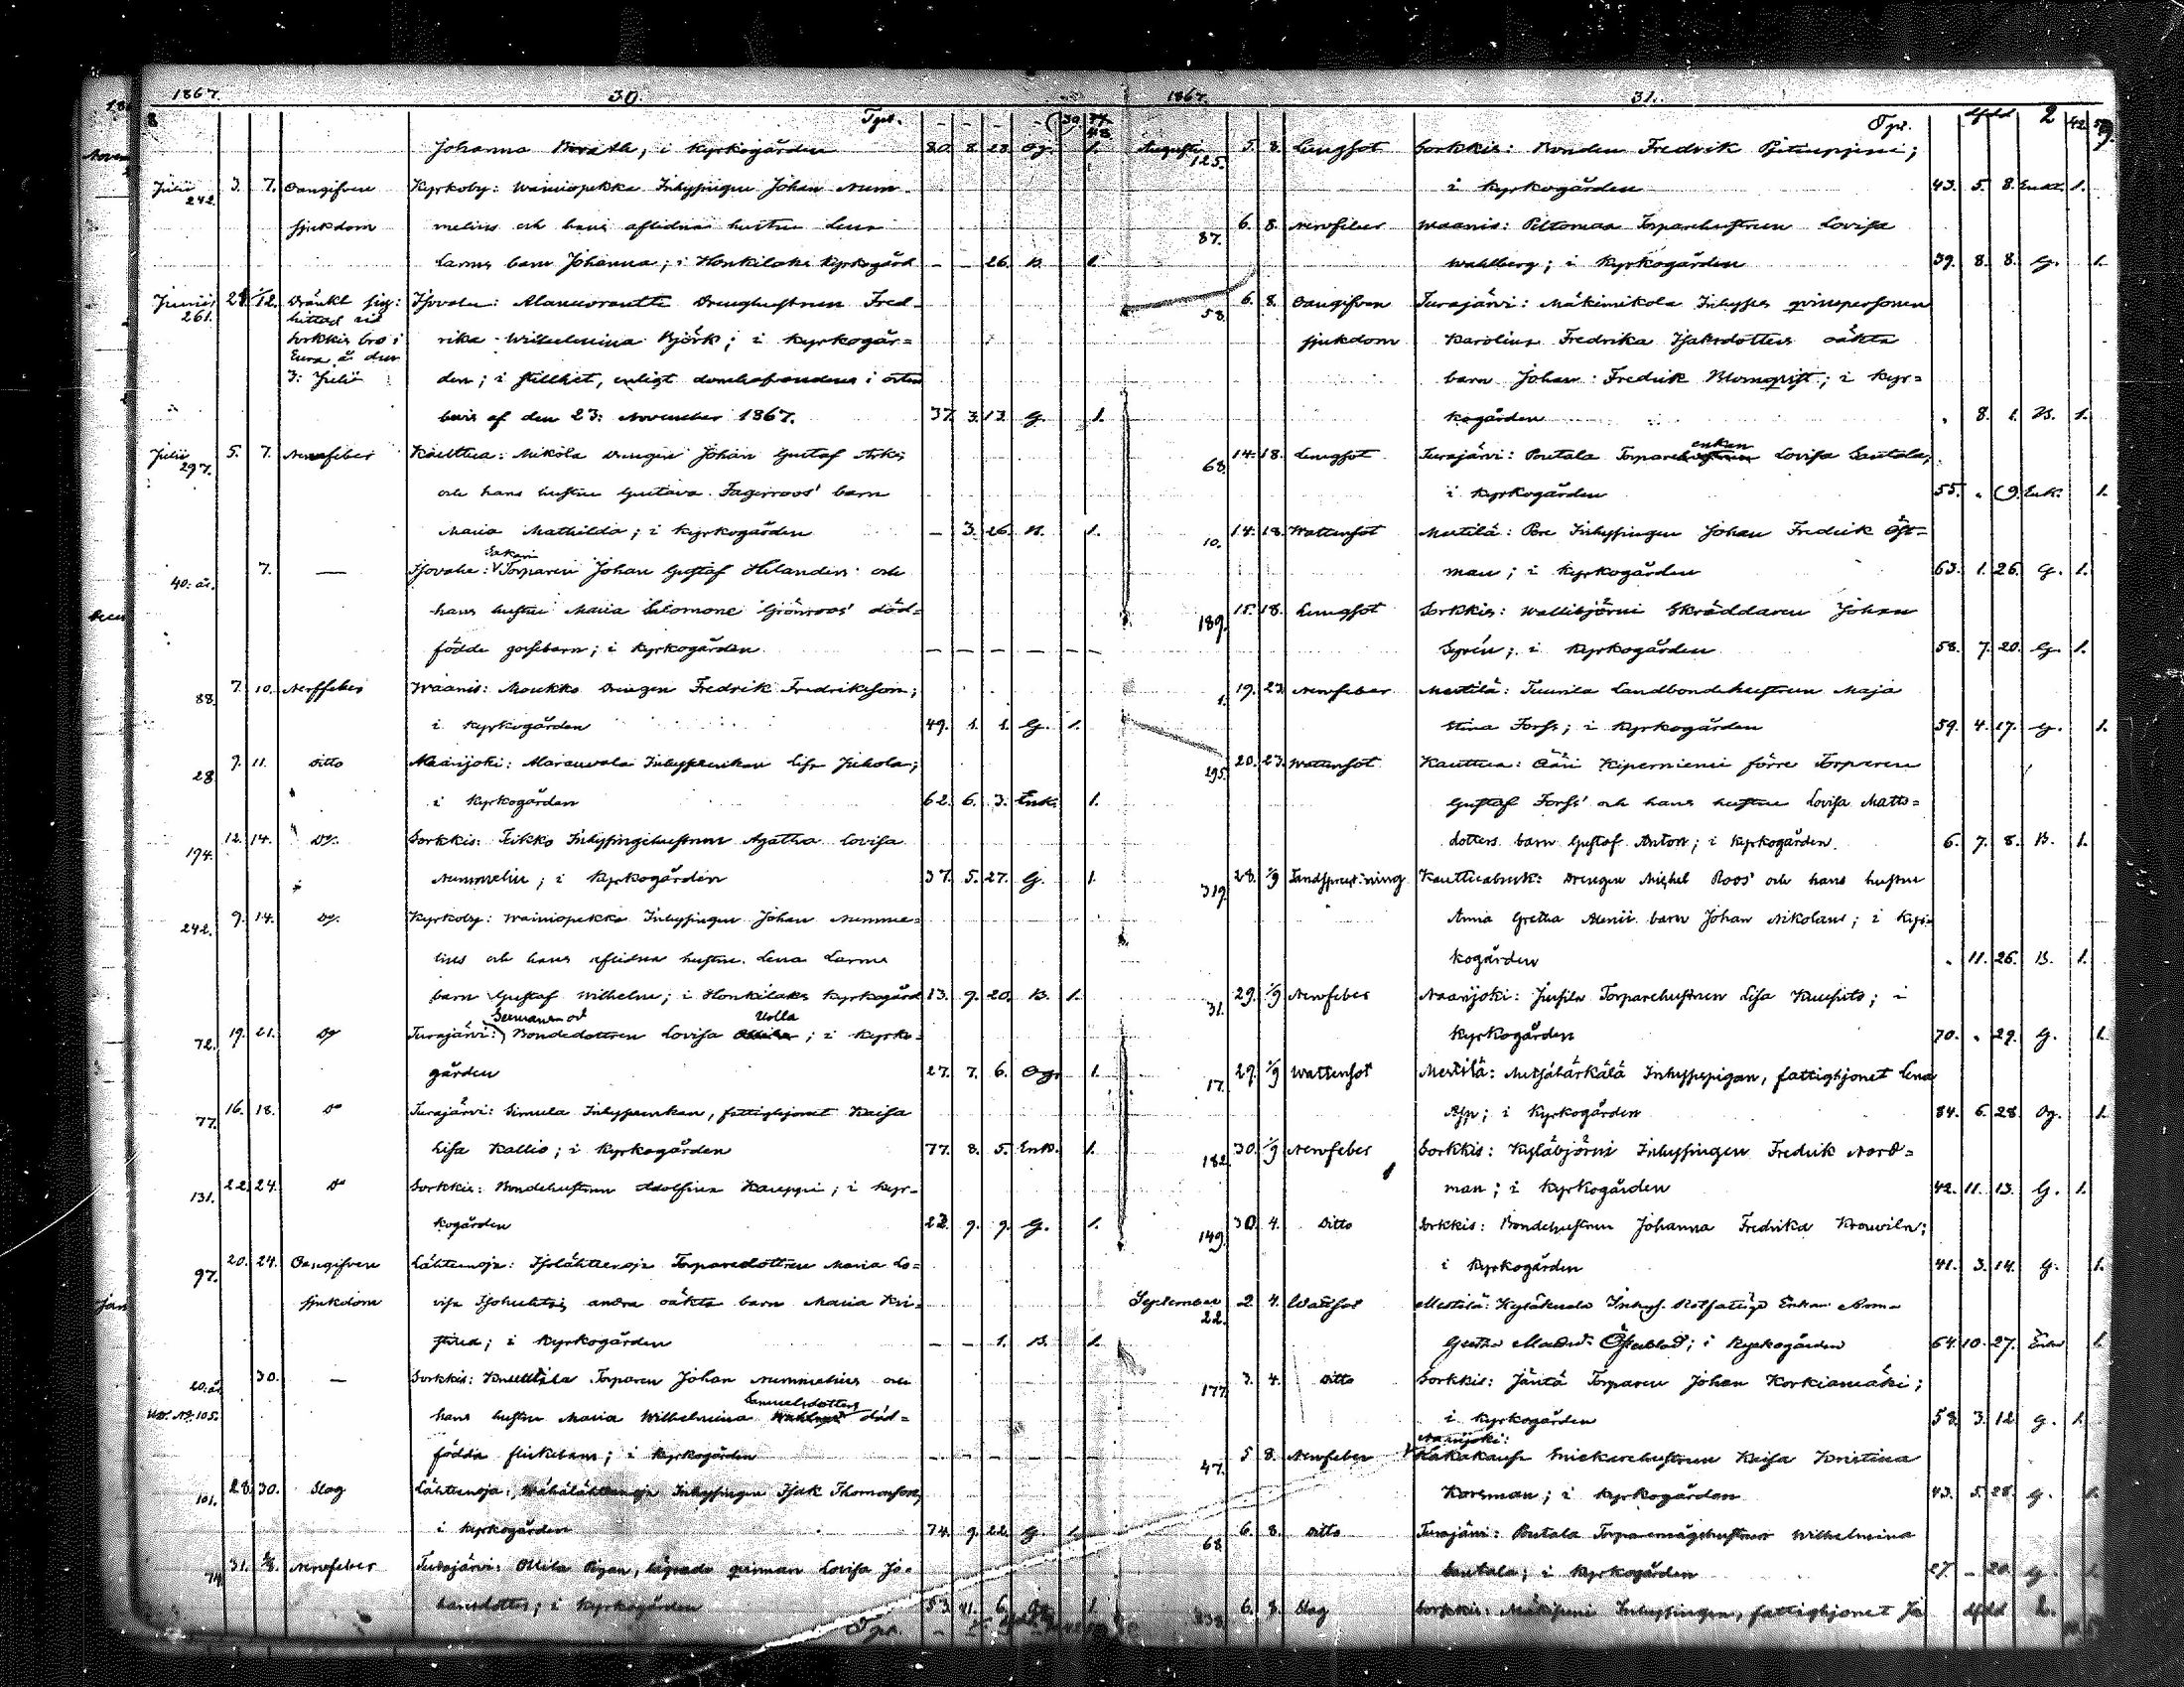 1867. 30.
Tpt.
Johanna Birath, i Kyrkogården 80. 8. 28. Og. 1.
Julii 3. 7. Oangifven Kyrkoby: Wainiopekka Inhysingen Johan Num-
242. sjukdom melins och hans aflidna hustru Lena
Larms barn Johanna; i Honkilaks Kyrkogård — — 26. B. 1.
Junii 28. 1/12. Dränkt sig: Isovahe: Alanuorautti Drenghustrun Fred-
261. hittad vid
Sorkkis bro i rika Wilhelmina Björk; i Kyrkogår-
Eura å den
3: Julii den; i stillhet, enligt domhafvandens i orten
bevis af den 23: November 1867. 37. 3. 13. G. 1.
Julii 5. 7. Nervfeber Kauttua: Mikola Drengen Johan Gustaf
297. och hans hustru Gustava Fagerroos' barn
Maria Mathilda; i Kyrkogården — 3. 26. B. 1.
7. — Isovahe: Torparen Johan Gustaf Helanders och
40: år. hans hustru Maria Salomone Grönroos' död-
födde gossebarn; i Kyrkogården — — — — — —
7. 10. Nerffeber Waanis: Moukko Drengen Fredrik Fredriksson;
88. i Kyrkogården 49. 1. 1. G. 1.
9. 11. ditto Naarijoki: Marauvala Inhysesenkan Lisa Juhola;
28. i Kyrkogården 62. 6. 3. Enk. 1.
12. 14. Do. Sorkkis: Fikko Inhysingehustrun Agatha Lovisa
194. Nummelin; i Kyrkogården 37. 5. 27. G. 1.
9. 14. Do. Kyrkoby: Wainiopekka Inhysingen Johan Numme-
242. lins och hans aflidna hustru Lena Larms
barn Gustaf Wilhelm; i Honkilaks Kyrkogård 13. 9. 20. B. 1.
19. 21. Do Turajärvi: Bondedottren Lovisa Uolla; i Kyrko-
72. gården 27. 7. 6. Og. 1.
16. 18. Do Turajärvi: Simula Inhysesenkan, fattighjonet Kaisa
77. Lisa Kallio; i Kyrkogården 77. 8. 5. Enk. 1.
22. 24. Do Sorkkis: Bondehustrun Adolfina Kauppi; i Kyr-
131. kogården 23. 9. 9. G. 1.
20. 24. Oangifven Lähteenoja: Isolähteenoja Torparedottren Maria Lo-
97. sjukdom visa andra oäkta barn Maria Kri-
stina; i Kyrkogården — — 1. B. 1.
30. — Sorkkis: Torparen Johan Nummelins och
20: år hans hustru Maria Wilhelmina Samuelsdotters död-
N: 105. födda flickebarn; i Kyrkogården — — — — — —
28. 30. Slag Lähteenoja: Wähälähteenoja Inhysingen Isak Thomasson;
101. i Kyrkogården 74. 9. 22. G. 1.
31. Nervfeber Turajärvi: Ollila Pigan, lägrade qvinnan Lovisa Jo-
74. hansdotter; i Kyrkogården 53. 11. 6. 1.
Tpt.
1867. 31.
Tpt. 2
Augusti 5. 8. Lungsot Sorkkis: Bonden Fredrik;
125. i Kyrkogården 43. 5. 8. 1.
6. 8. Nervfeber Waanis: Peltomaa Torparehustrun Lovisa
87. Wahlberg; i Kyrkogården 39. 8. 8. G. 1.
6. 8. Oangifven Turajärvi: Mäkimikola Inhyses qvinspersonen
58. sjukdom Karolina Fredrika Isaksdotters oäkta
barn Johan Fredrik Blomqvist; i Kyr-
kogården . 8. 1. B. 1.
14. 18. Lungsot Turajärvi: Poutala Torpareenkan Lovisa Santala;
68. i Kyrkogården 55. . 9. Enk. 1.
14. 18. Wattensot Mestilä: Pere Inhysingen Johan Fredrik Öst-
10. man; i Kyrkogården 63. 1. 26. G. 1.
15. 18. Lungsot Sorkkis: Wallibjörni Skräddaren Johan
189. Syrén; i Kyrkogården 58. 7. 20. G. 1.
19. 23. Nervfeber Mestilä: Tuurila Landbondehustrun Maja
1. Stina Forss; i Kyrkogården 59. 4. 17. G. 1.
20. 23. Wattensot Kauttua: Kiperniemi förre Torparen
295. Gustaf Forss' och hans hustru Lovisa Matts-
dotters barn Gustaf Anton; i Kyrkogården. 6. 7. 8. B. 1.
28. 1/9 Tandsprickning Kauttuabruk: Drengen Michel Roos' och hans hustru
319. Anna Gretha Alenii barn Johan Nikolaus; i Kyr-
kogården . 11. 26. B. 1.
29. 1/9 Nervfeber Naarijoki: Jussila Torparehustrun Lisa Kuusisto; i
31. Kyrkogården 70. . 29. G. 1.
29. 1/9 Wattensot Mestilä: Metsähärkälä Inhysespigan, fattighjonet Lena
17. Asp; i Kyrkogården 84. 6. 28. Og. 1.
30. 1/9 Nervfeber Sorkkis: Kyläbjörni Inhysingen Fredrik Nord-
182. man; i Kyrkogården 42. 11. 13. G. 1.
30. 4. Ditto Sorkkis: Bondehustrun Johanna Fredrika Krouvila;
149. i Kyrkogården 41. 3. 14. G. 1.
September 2. 4. Watsot Mestilä: Inhys. Rotfattige Enkan Anna
22. Gretha; i Kyrkogården 64. 10. 27. Enk. 1.
3. 4. ditto Sorkkis: Jäntä Torparen Johan Korkiamäki;
177. i Kyrkogården 58. 3. 12. G. 1.
Naarijoki:
5. 8. Nervfeber Snickarehustrun Kaisa Kristina
47. Korsman; i Kyrkogården 43. 5. 28. G. 1.
6. 8. ditto Turajärvi: Poutala Torparemågshustrun Wilhelmina
68. Santala; i Kyrkogården 27. — 20. G. 1.
6. 8. Slag Sorkkis: Mäkipeni Inhysingen, fattighjonet Jo
238. 2.